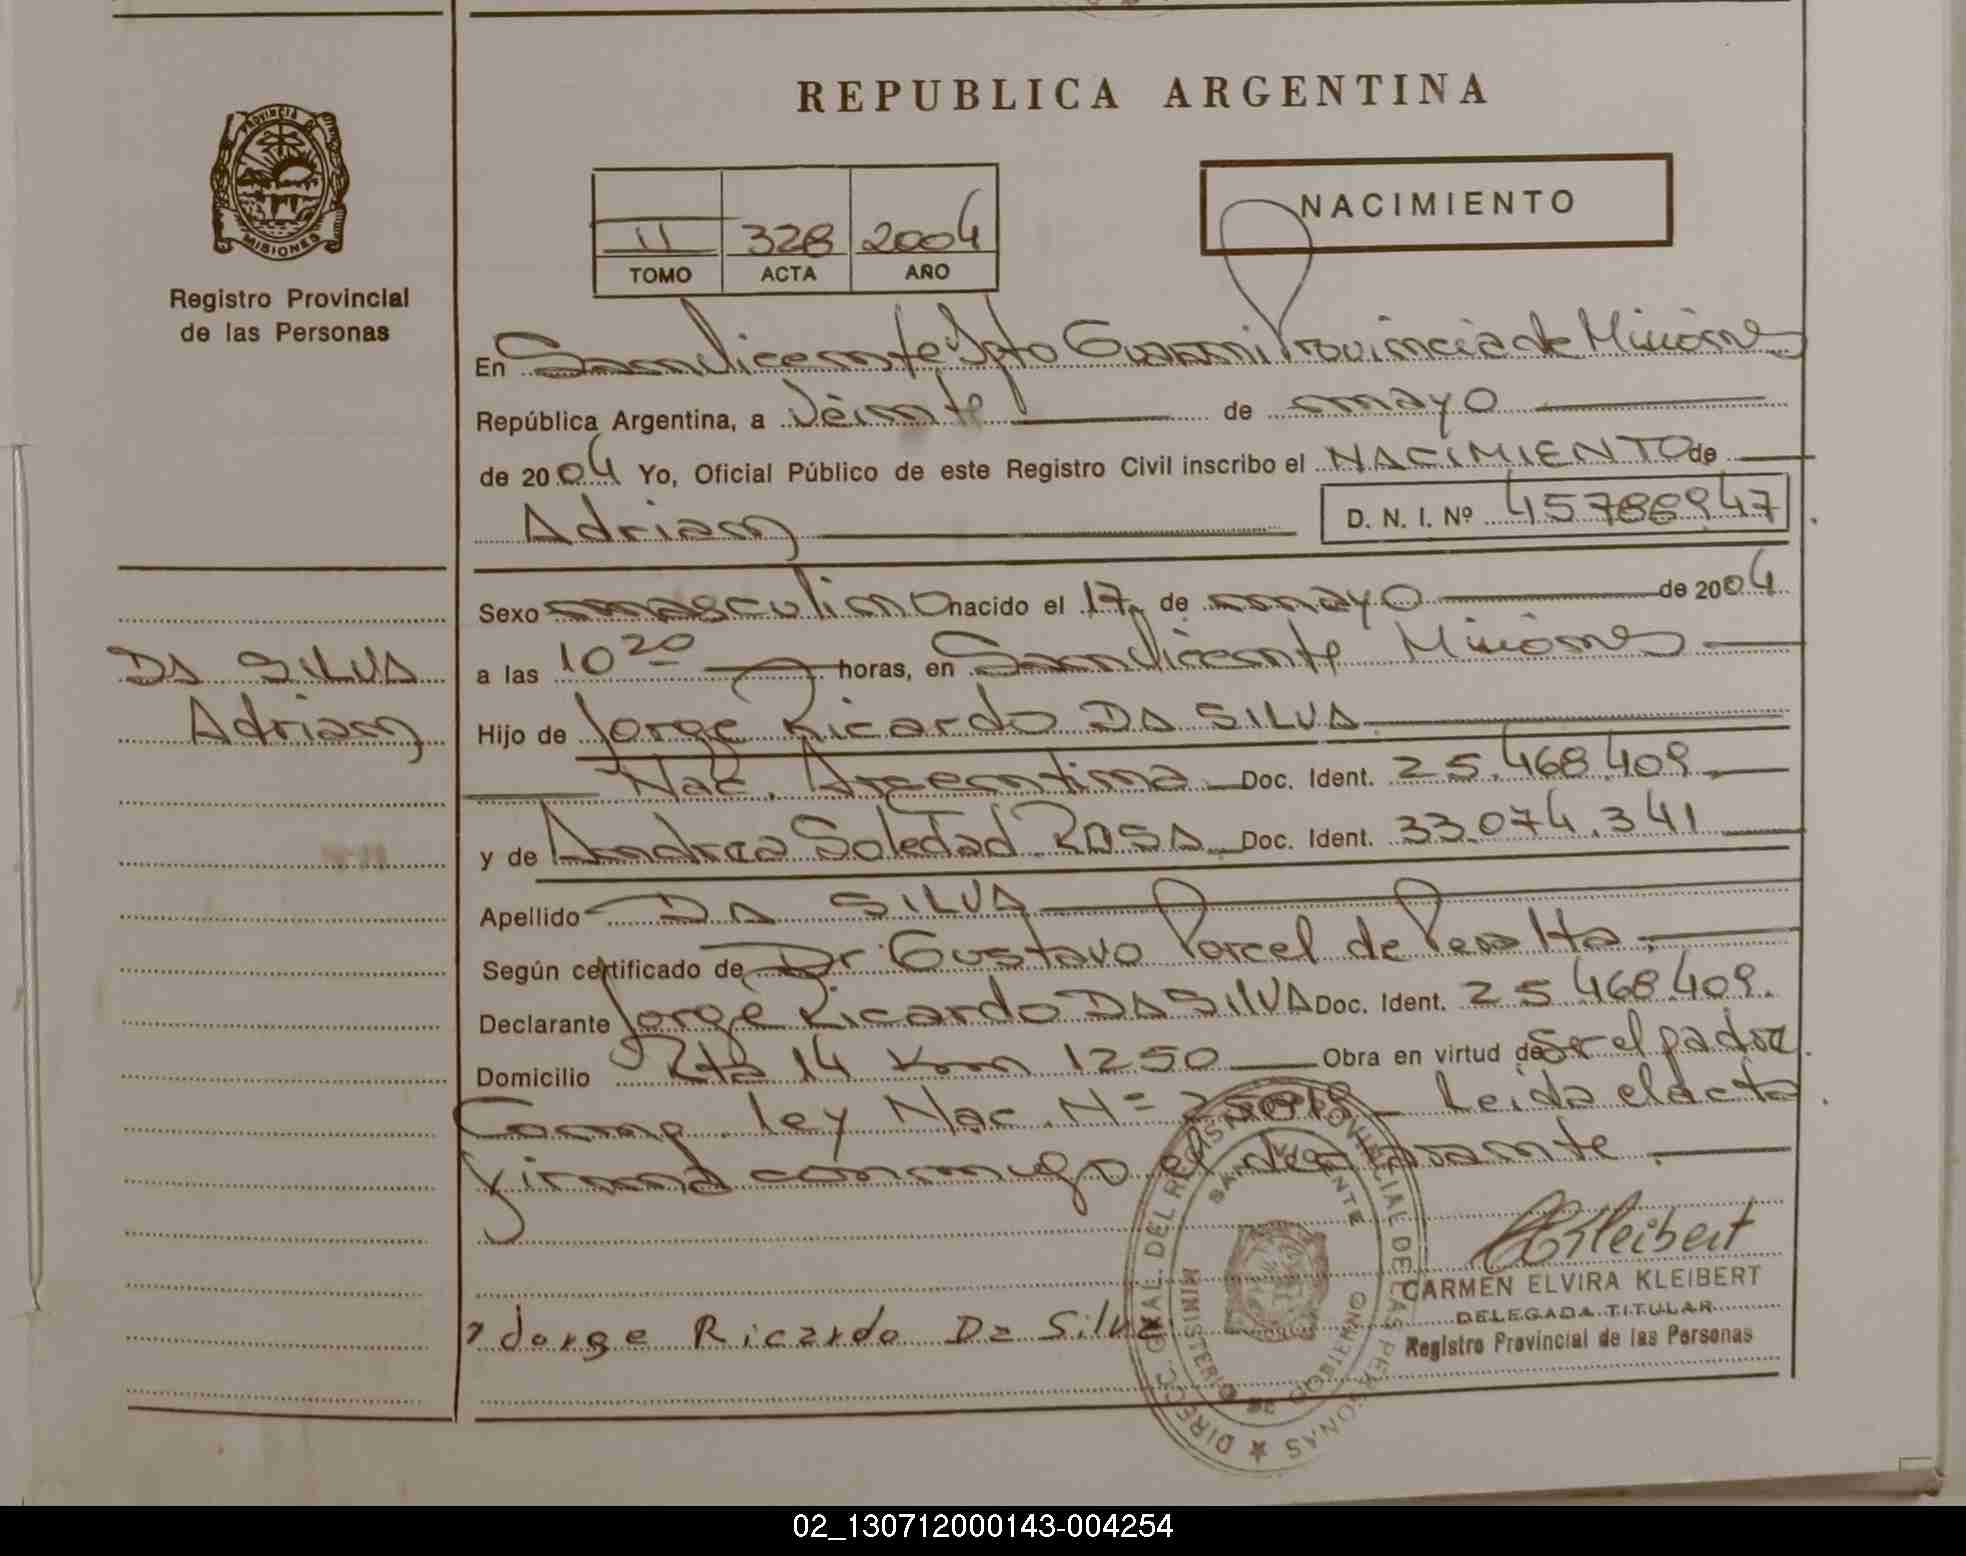 REPUBLICA ARGENTINA
PROVINCIA DE
MISIONES
Registro Provincial
de las Personas
NACIMIENTO
II 328 2004
TOMO ACTA AÑO
En San Vicente Dpto Guarani Provincia de Misiones
República Argentina, a Veinte de mayo
de 2004 Yo, Oficial Público de este Registro Civil inscribo el NACIMIENTO de
Adrian D. N. I. Nº 45788947
Sexo masculino nacido el 17 de mayo de 2004
DA SILVA
a las 10 20 horas, en San Vicente Misiones
Adrian
Hijo de Jorge Ricardo DA SILVA
Nac. Argentina Doc. Ident. 25.468.409
y de Andrea Soledad ROSA Doc. Ident. 33.074.341
Apellido DA SILVA
Según certificado de Dr Gustavo Porcel de Peralta
Declarante Jorge Ricardo DA SILVA Doc. Ident. 25.468.409.
Domicilio Rta 14 Km 1250 Obra en virtud de Ser el padre.
Comp. ley Nac. Nº Leida el acta
firma conmigo el declarante
DIRECC. GRAL. DEL REGISTRO PROVINCIAL DE LAS PERSONAS
SAN VICENTE
MINISTERIO DE GOBIERNO
CKleibert
CARMEN ELVIRA KLEIBERT
DELEGADA TITULAR
Registro Provincial de las Personas
Jorge Ricardo Da Silva
02_130712000143-004254